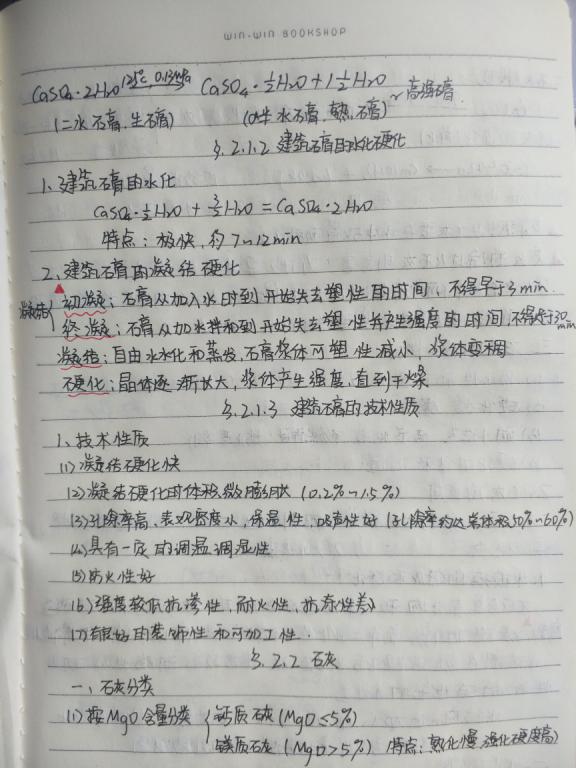 WIN-WIN BOOKSHOP
CaSO₄·2H₂O 125℃, 0.13MPa CaSO₄·½H₂O + 1½H₂O
(二水石膏,生石膏) (α半水石膏,熟石膏) ~ 高强石膏
§.2.1.2 建筑石膏的水化硬化
1、建筑石膏的水化
CaSO₄·½H₂O + 3/2H₂O = CaSO₄·2H₂O
特点:极快,约7~12min
2、建筑石膏的凝结硬化
凝结{ 初凝:石膏从加入水时到开始失去塑性的时间,不得早于3min
终凝:石膏从加水拌和到开始失去塑性并产生强度的时间,不得迟于30min
凝结:自由水水化和蒸发,石膏浆体可塑性减小,浆体变稠
硬化:晶体逐渐长大,浆体产生强度,直到干燥
§.2.1.3 建筑石膏的技术性质
1、技术性质
(1)凝结硬化快
(2)凝结硬化时体积微膨胀 (0.2%~1.5%)
(3)孔隙率高、表观密度小,保温性,吸声性好 (孔隙率约达总体积50%~60%)
(4)具有一定的调温调湿性
(5)防火性好
(6)强度较低,抗渗性,耐火性,抗冻性差
(7)有良好的装饰性和可加工性.
§.2.2 石灰
一、石灰分类
(1)按MgO含量分类 { 钙质石灰(MgO≤5%)
镁质石灰 (MgO>5%) (特点:熟化慢,强化硬度高)